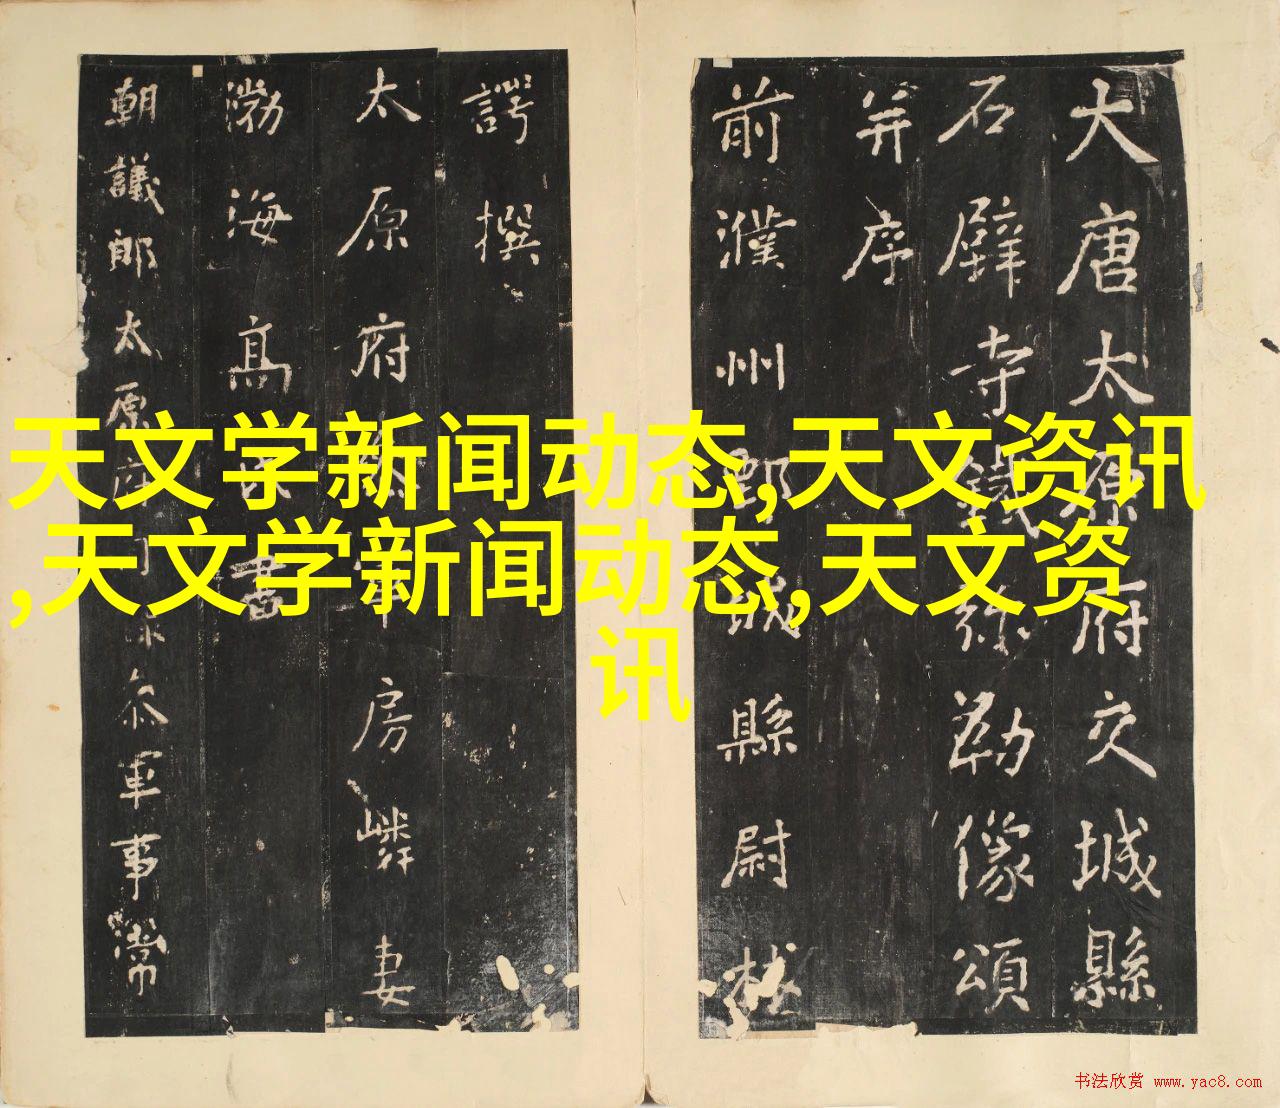 天文学新闻动态,天文资讯
,天文学新闻动态,天文资
讯
大唐太原府交城縣
石壁寺鐵弥勒像頌
并序
前濮州鄄城縣尉林
諤撰
太原府房嶙妻
渤海高書
朝議郎太原府司叅軍事常
书法欣赏 www.yac8.com